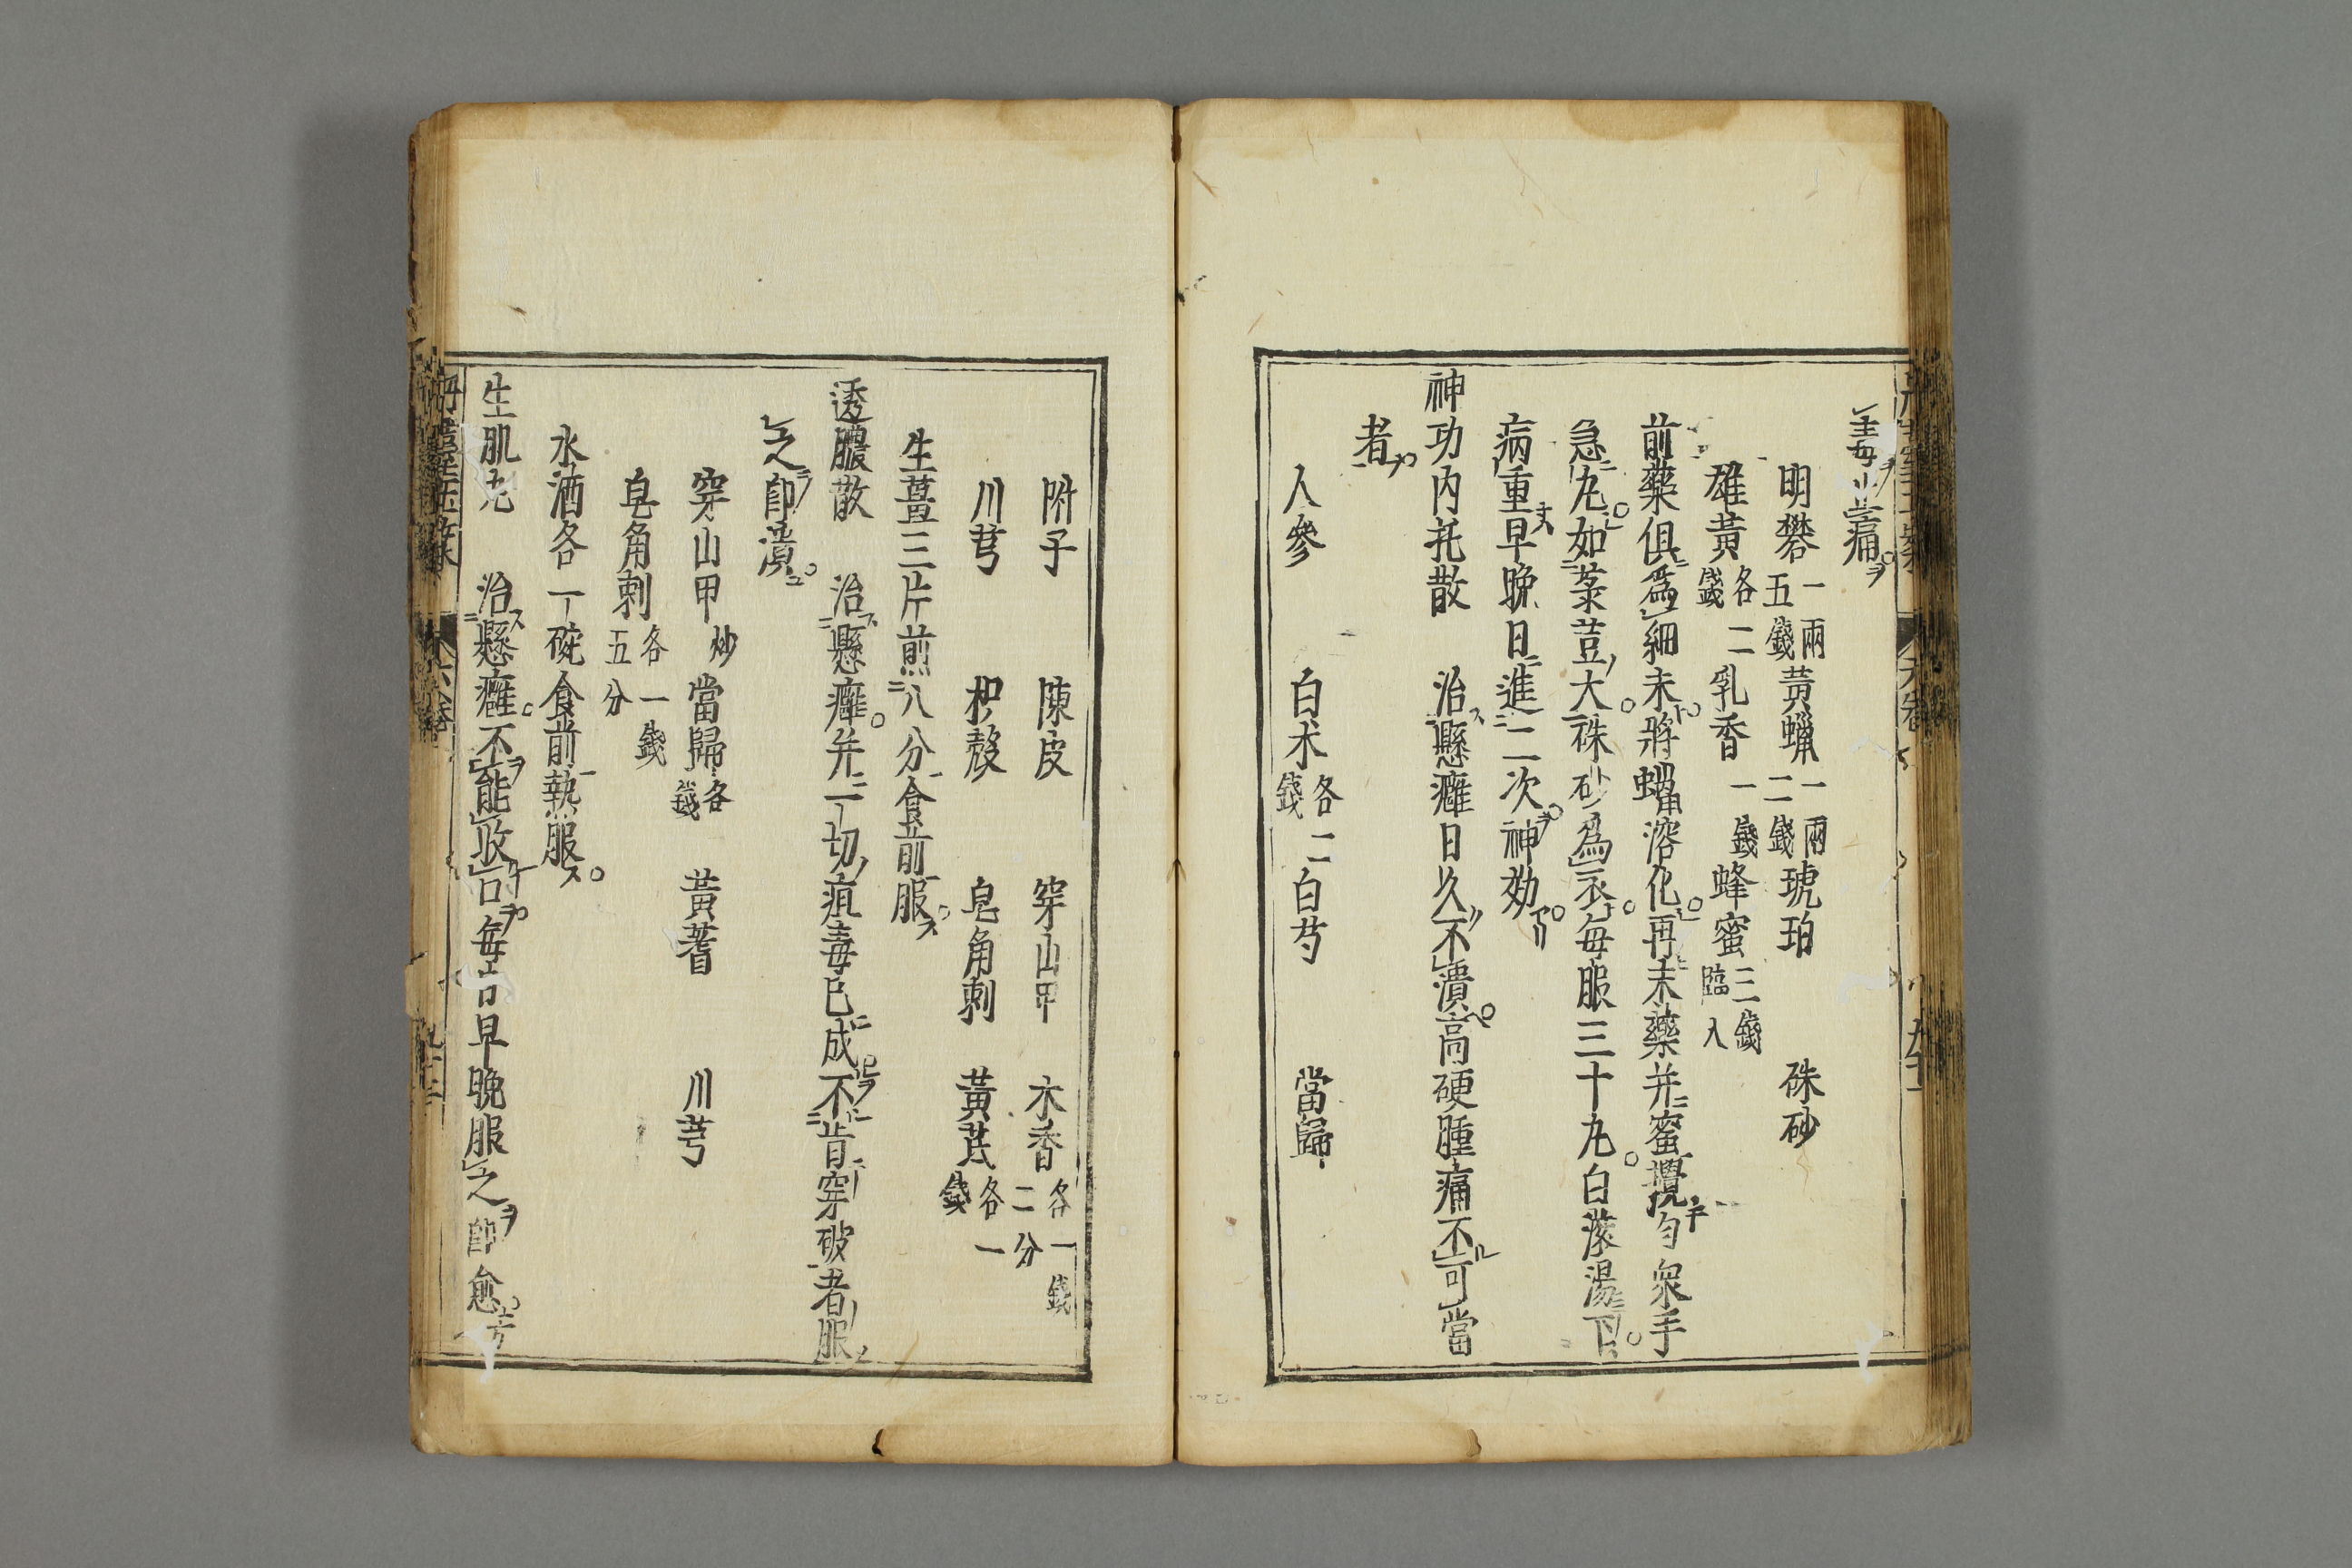 毒止痛ヲ
明礬一兩五錢 黃蠟一兩二錢 琥珀 硃砂
雄黃各二錢 乳香一錢 蜂蜜三錢臨入
前藥俱爲細末將蠟溶化再末藥并蜜攪勻衆手
急丸如菉荳大硃砂爲衣每服三十丸白滾湯下
病重早晚日進二次神効
神功內托散 治懸癰日久不潰高硬腫痛不可當
者
人參 白朮各二錢 白芍 當歸
附子 陳皮 穿山甲 木香各一錢二分
川芎 枳殼 皂角刺 黃芪各一錢
生薑三片煎八分食前服
透膿散 治懸癰并一切疽毒已成不肯穿破者服
之卽潰
穿山甲炒 當歸各錢 黃蓍 川芎
皂角刺各一錢五分
水酒各一碗食前熱服
生肌丸 治懸癰不能收口每日早晚服之卽愈方
六卷